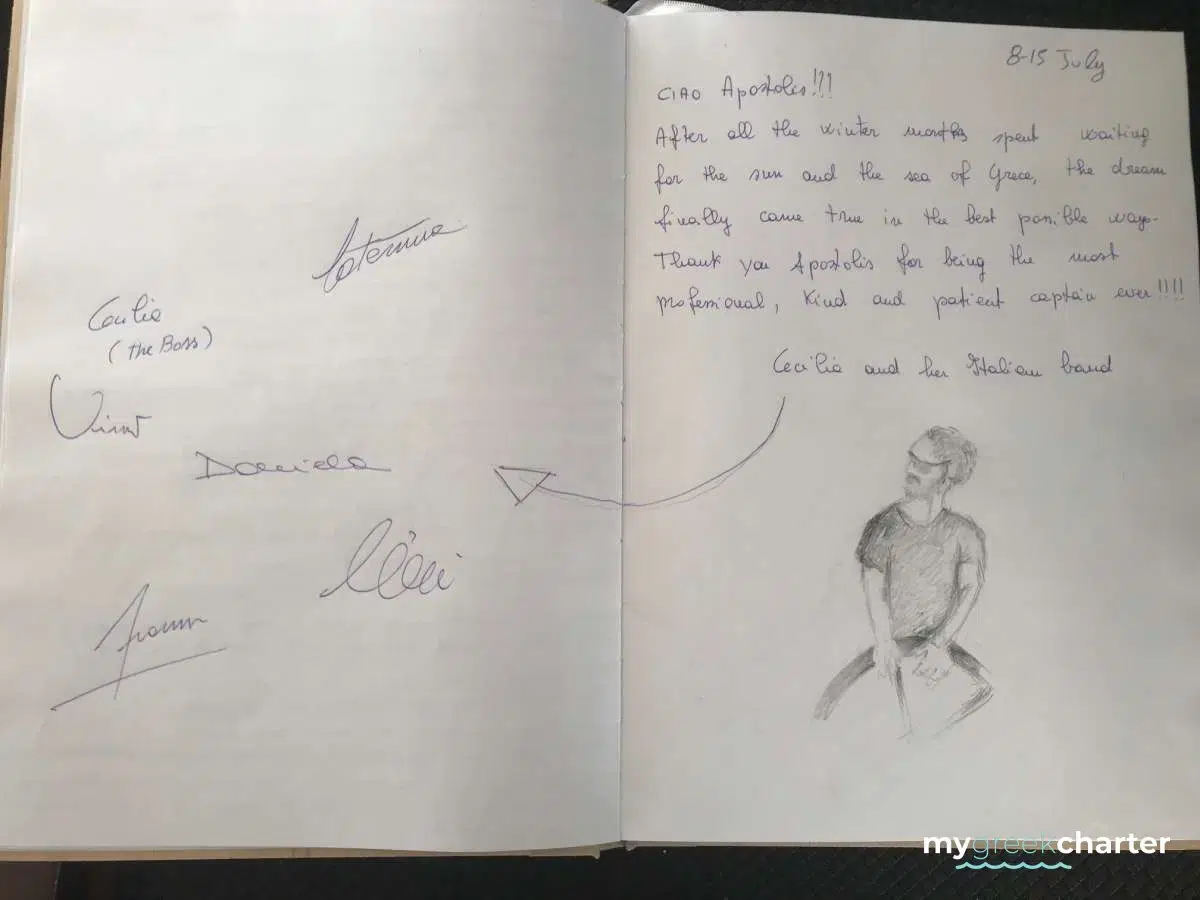 Caterina
Cecilia
(the Boss)
Daniela
8-15 July
CIAO Apostolis!!!
After all the winter months spent waiting
for the sun and the sea of Grece, the dream
finally came true in the best possible ways.
Thank you Apostolis for being the most
professional, kind and patient captain ever!!!!
Cecilia and her Italian band
mygreekcharter